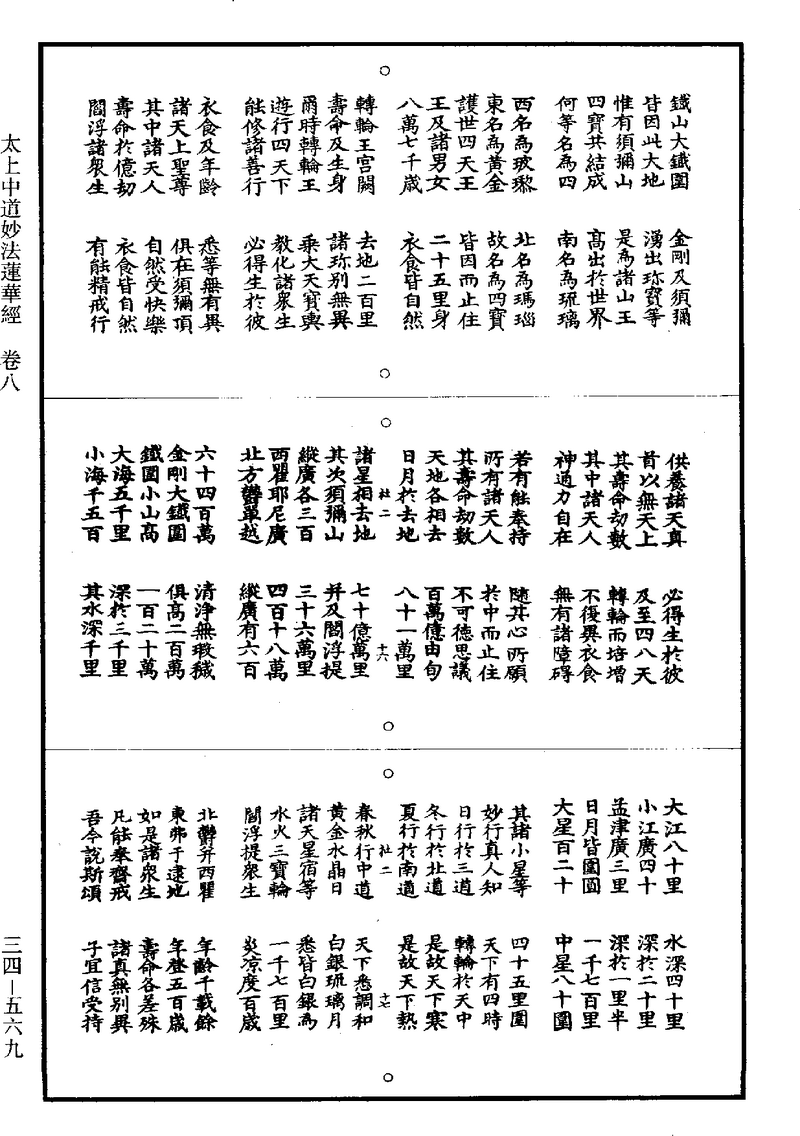 太上中道妙法蓮華經 卷八
三四—五六九
鐵山大鐵圍 金剛及須彌
皆因此大地 湧出珎寳等
惟有須彌山 是爲諸山王
四寶共結成 高出於世界
何等名爲四 南名爲琉璃
西名爲玻瓈 北名爲瑪瑙
東名爲黃金 故名爲四寶
護世四天王 皆因而止住
王及諸男女 二十五里身
八萬七千歲 衣食皆自然
轉輪王宮闕 去地二百里
壽命及生身 諸珎別無異
爾時轉輪王 乘大天寳輿
遊行四天下 教化諸衆生
能修諸善行 必得生於彼
衣食及年齡 悉等無有異
諸天上聖尊 俱在須彌頂
其中諸天人 自然受快樂
壽命於億劫 衣食皆自然
閻浮諸衆生 有能精戒行
供養諸天真 必得生於彼
首以無天上 及至四八天
其壽命劫數 轉輪而培增
其中諸天人 不復興衣食
神通力自在 無有諸障碍
若有能奉持 隨其心所願
所有諸天人 於中而止住
其壽命劫數 不可德思議
天地各相去 百萬億由旬
日月於去地 八十一萬里
社二 十六
諸星相去地 七十億萬里
其次須彌山 并及閻浮提
縱廣各三百 三十六萬里
西瞿耶尼廣 四百十八萬
北方欝單越 縱廣有六百
六十四百萬 清淨無瑕穢
金剛大鐵圍 俱高二百萬
鐵圍小山高 一百二十萬
大海五千里 深於三千里
小海千五百 其水深千里
大江八十里 水深四十里
小江廣四十 深於二十里
孟津廣三里 深於一里半
日月皆圍圓 一千七百里
大星百二十 中星八十圍
其諸小星等 四十五里圍
妙行真人知 天下有四時
日行於三道 轉輪於天中
冬行於北道 是故天下寒
夏行於南道 是故天下熱
社二 十七
春秋行中道 天下悉調和
黃金水晶日 白銀琉璃月
諸天星宿等 悉皆白銀爲
水火三寶輪 一千七百里
閻浮提衆生 炎凉度百歲
北欝并西瞿 年齡千載餘
東弗于逮地 年登五百歲
如是諸衆生 壽命各差殊
凡能奉齋戒 諸真無別異
吾今說斯頌 子宜信受持